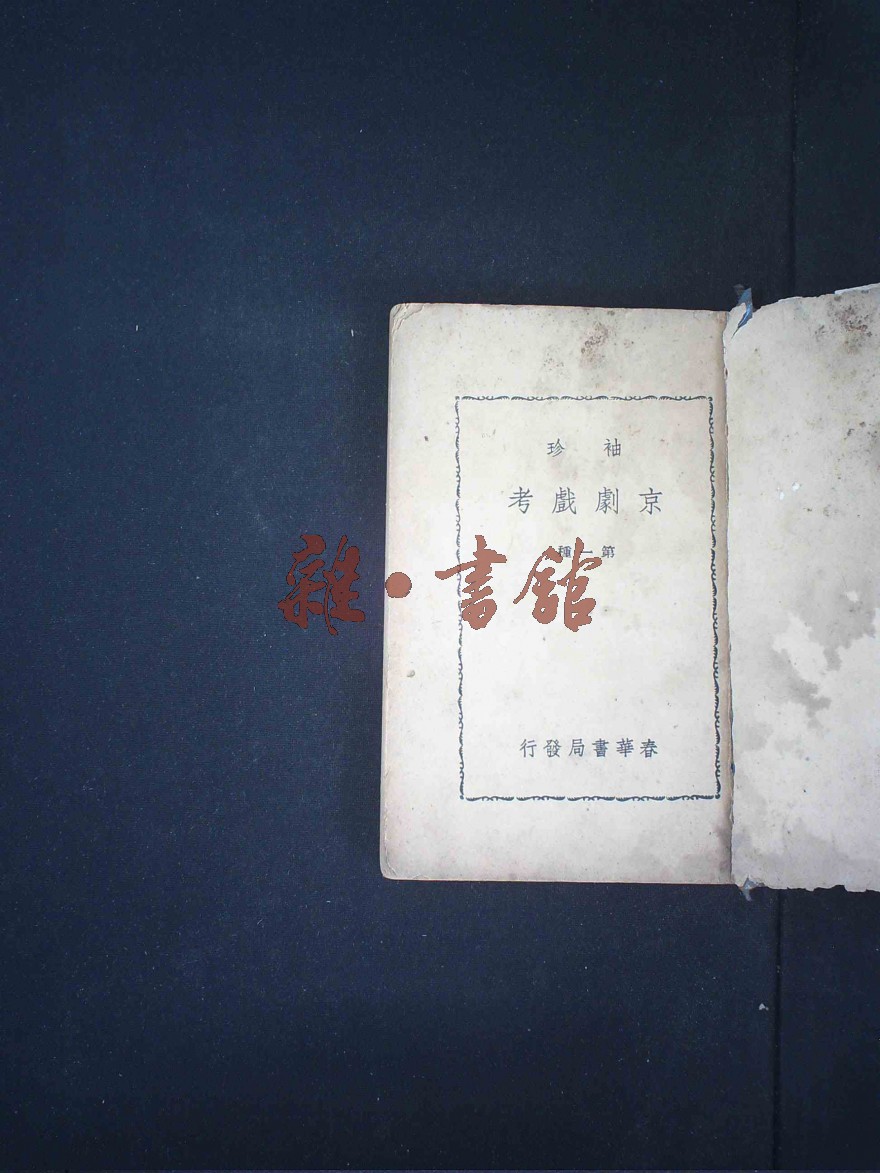 袖珍
京劇戲考
第一種
雜·書館
春華書局發行